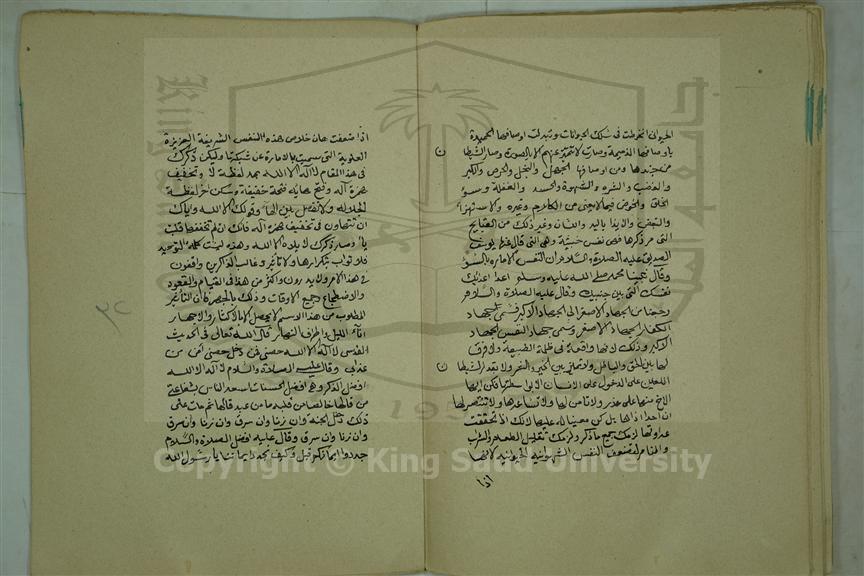 الحيواني انخرطت في سلك الحيوانات وتبدلت اوصافها الحميدة
باوصافها الذميمة وصارت لا تتميز عنهم الا بالصورة وصار الشيطان
من جندها ومن اوصافها الجهل والبخل والحرص والكبر
والغضب والشره والشهوة والحسد والغفلة وسوء
الخلق والخوض فيما لا يعني من الكلام وغيره والاستهزاء
والبغض والايذا باليد واللسان وغير ذلك من القبايح
التي مر ذكرها فهي نفس خبيثة وهي التي قال عنها يوسف
الصديق عليه الصلاة والسلام ان النفس لامارة بالسوء
وقال نبينا محمد صلى الله عليه وسلم اعدا اعدائك
نفسك التي بين جنبيك وقال عليه الصلاة والسلام
رجعنا من الجهاد الاصغر الى الجهاد الاكبر فسمى جهاد
الكفار الجهاد الاصغر وسمى جهاد النفس الجهاد
الاكبر وذلك لانها واقعة في ظلمة الطبيعة ولا فرق
لها بين الحق والباطل ولا تميز بين الخير والشر ولا يقدر الشيطان
اللعين على الدخول على الانسان الا بواسطتها فكن ايها
الاخ منها على حذر ولا تامن لها ولا تساعدها ولا تنتصر لها
ان احدا اذاها بل كن معينا له عليها لانك اذ تحققت
عداوتها لزمك جميع ما ذكر ولزمك تقليل الطعام والشرب
والمنام لتضعف النفس الشهوانية الحيوانية لانها
اذا
اذا ضعفت هان خلاص هذه النفس الشريفة العزيزة
العلوية التي سميت بالامارة عن شبكتها وليكن ذكرك
في هذا المقام لا اله الا الله بمد لفظة لا وتخفيف
همزة اله وفتح هائه فتحة خفيفة وسكن اخر لفظة
الجلاله ولا تفصل بين الها وقولك الا الله واياك
ان تتهاون في تخفيف همزة اله فانك ان لم تخففها قلبت
يا وصار ذكرك لا يلاه الا الله وهذه ليست كلمة التوحيد
فلا ثواب بتكرارها ولا تاثير وغالب الذاكرين واقفون
في هذا الامر ولا يدرون واكثر من هذا في القيام والقعود
والاضطجاع جميع الاوقات وذلك بالجهر فان التاثير
المطلوب من هذا الاسم لا يحصل الا بالاكثار والاجهار
اناء الليل واطراف النهار قال الله تعالى في الحديث
القدسي لا اله الا الله حصني فمن دخل حصني امن من
عذابي وقال عليه الصلاة والسلام لا اله الا الله
افضل الذكر وهي افضل الحسنات اسعد الناس بشفاعتي
من قالها خالصا من قلبه ما من عبد قالها ثم مات على
ذلك دخل الجنة وان زنا وان سرق وان زنا وان سرق
وان زنا وان سرق وقال عليه افضل الصلاة والسلام
جددوا ايمانكم قيل وكيف نجدد ايماننا يا رسول الله
٣٢
Copyright © King Saud University